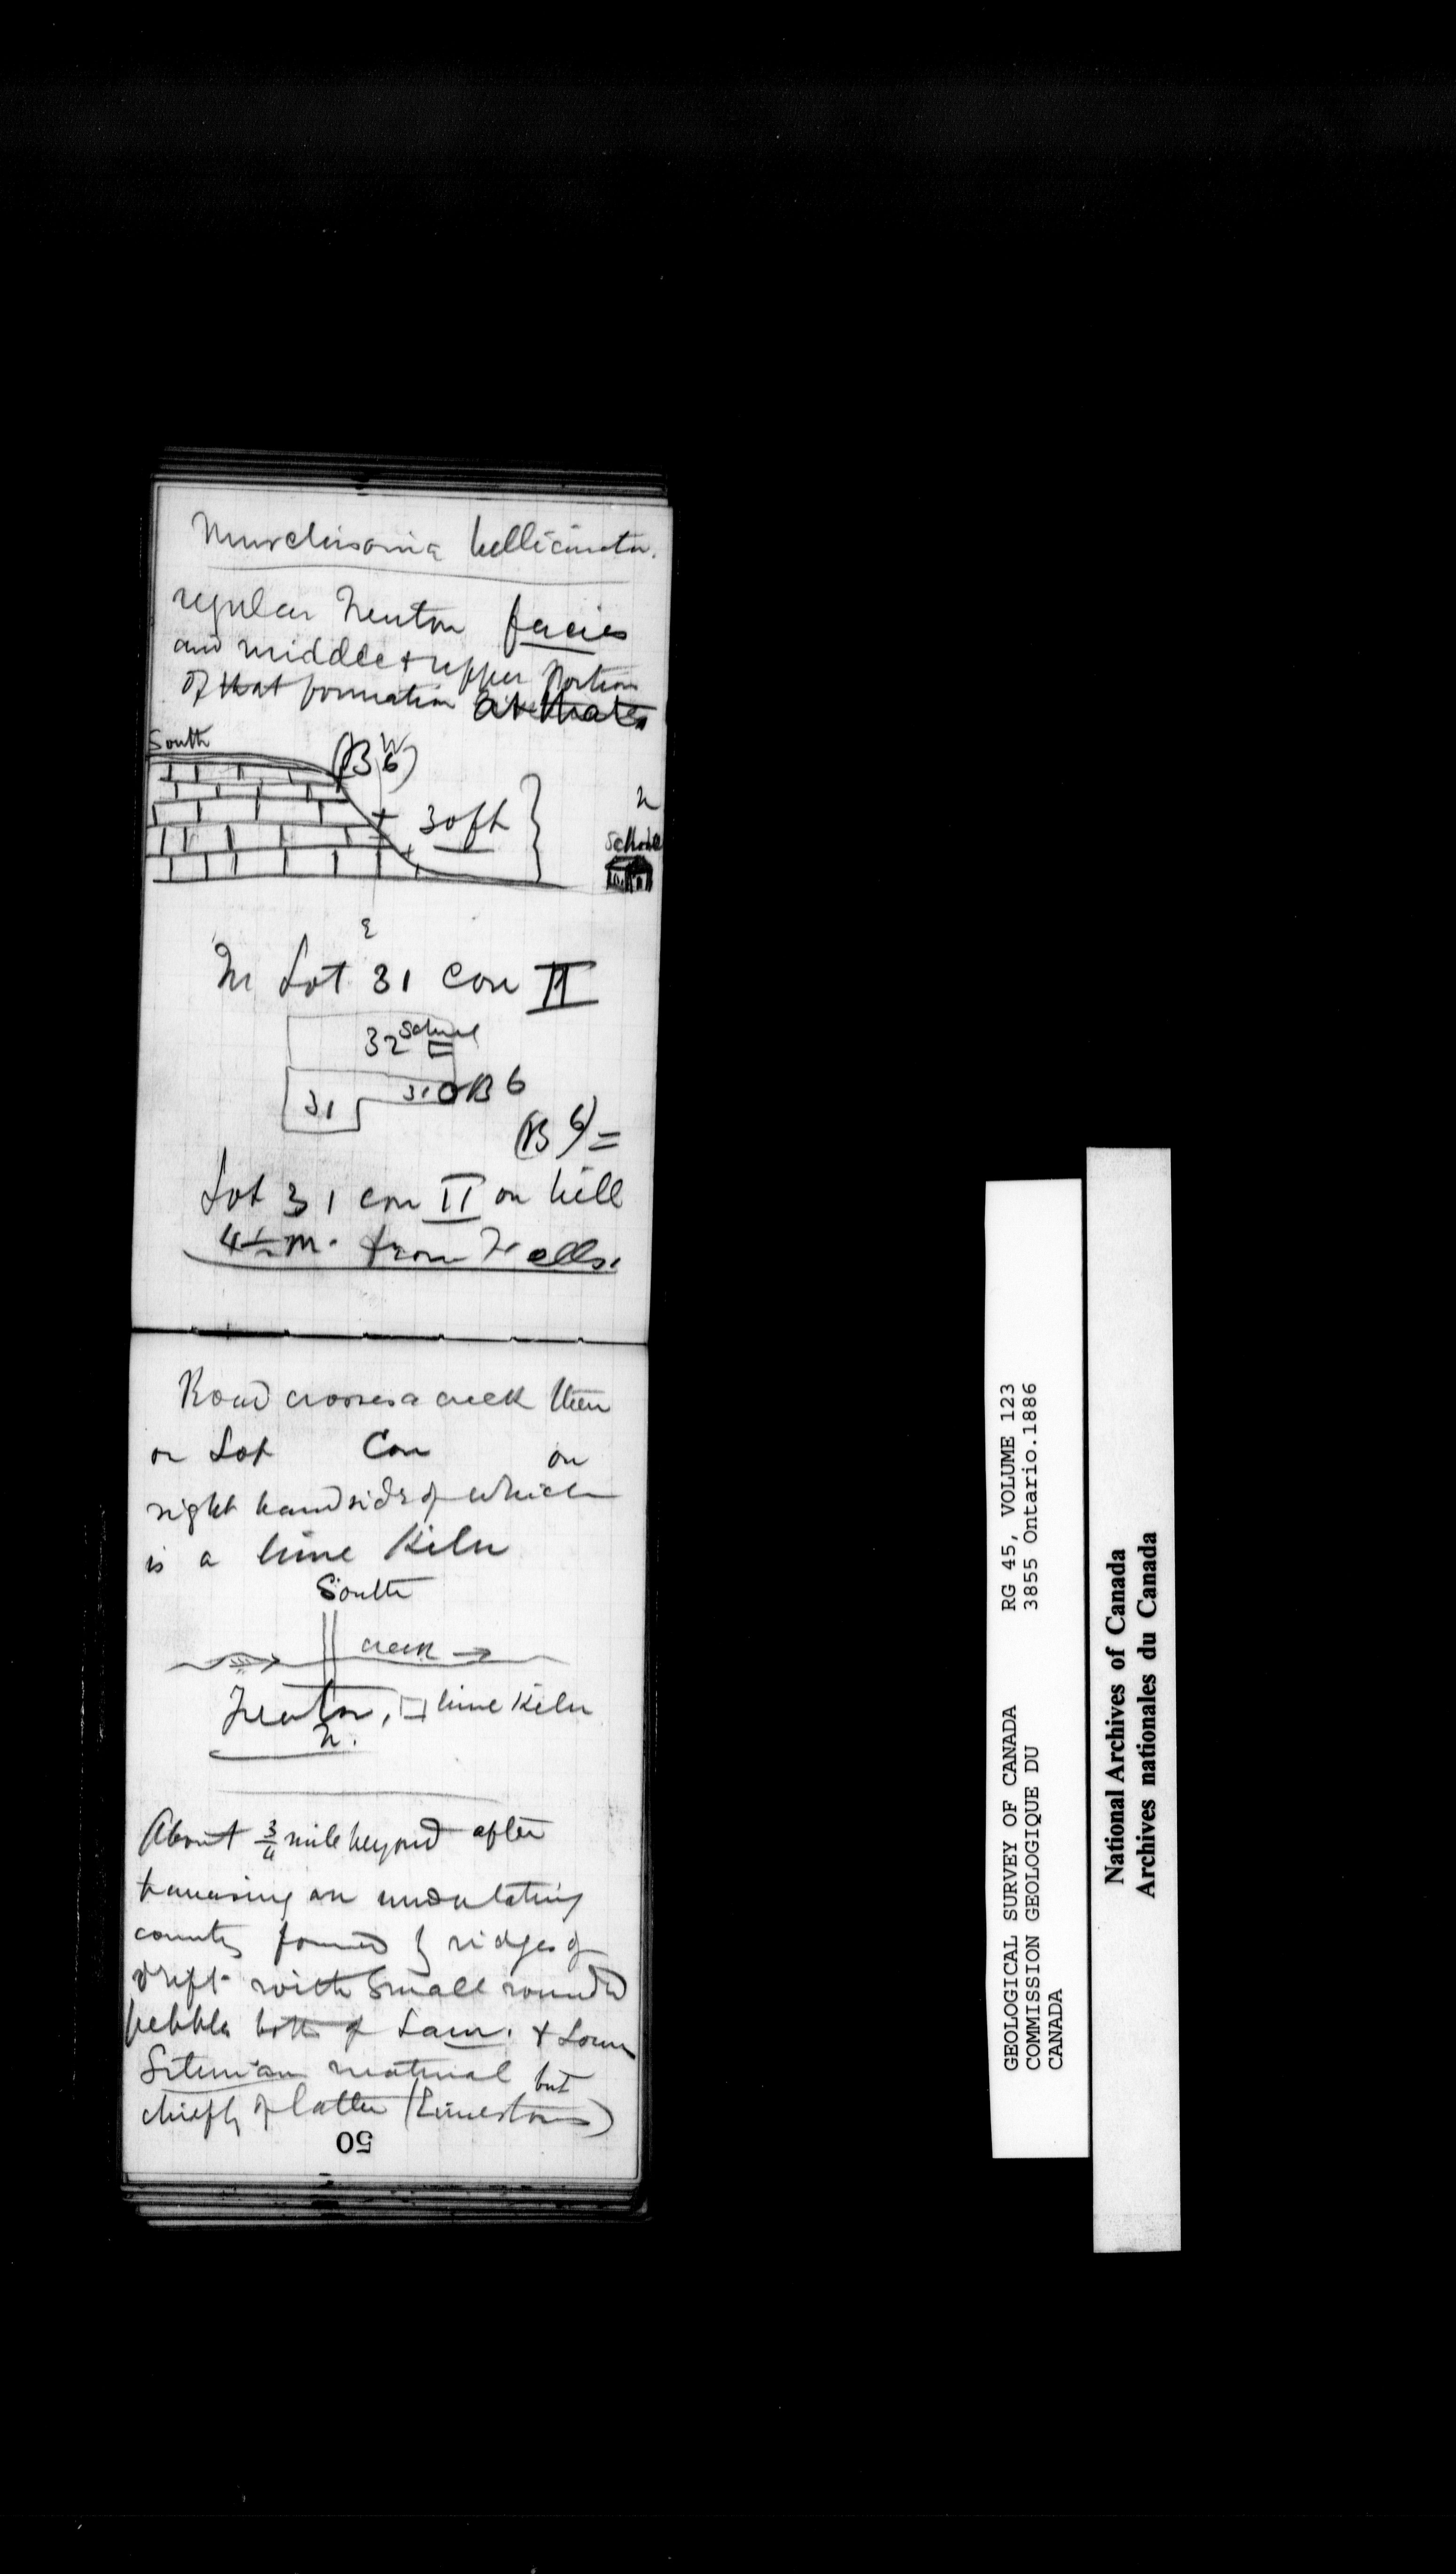 Murchisonia bellicincta.
regular Trenton facies
and middle & upper portion
of that formation at that.
South
(B 6) W
N
+ 30 ft
School
E
In Lot 31 Con II
32 School
31 31 B 6
(B 6) =
Lot 31 con II on hill
4½ m. from Falls.
Road crosses a creek then
on Lot Con on
right hand side of which
is a lime Kiln
South
creek →
Trenton, lime Kiln
N.
About ¾ mile beyond after
traversing an undulating
country formed of ridges of
drift with small rounded
pebbles both of Laur. & Lower
Silurian material but
chiefly of latter (Limestones)
50
RG 45, VOLUME 123
3855 Ontario.1886
GEOLOGICAL SURVEY OF CANADA
COMMISSION GEOLOGIQUE DU
CANADA
National Archives of Canada
Archives nationales du Canada